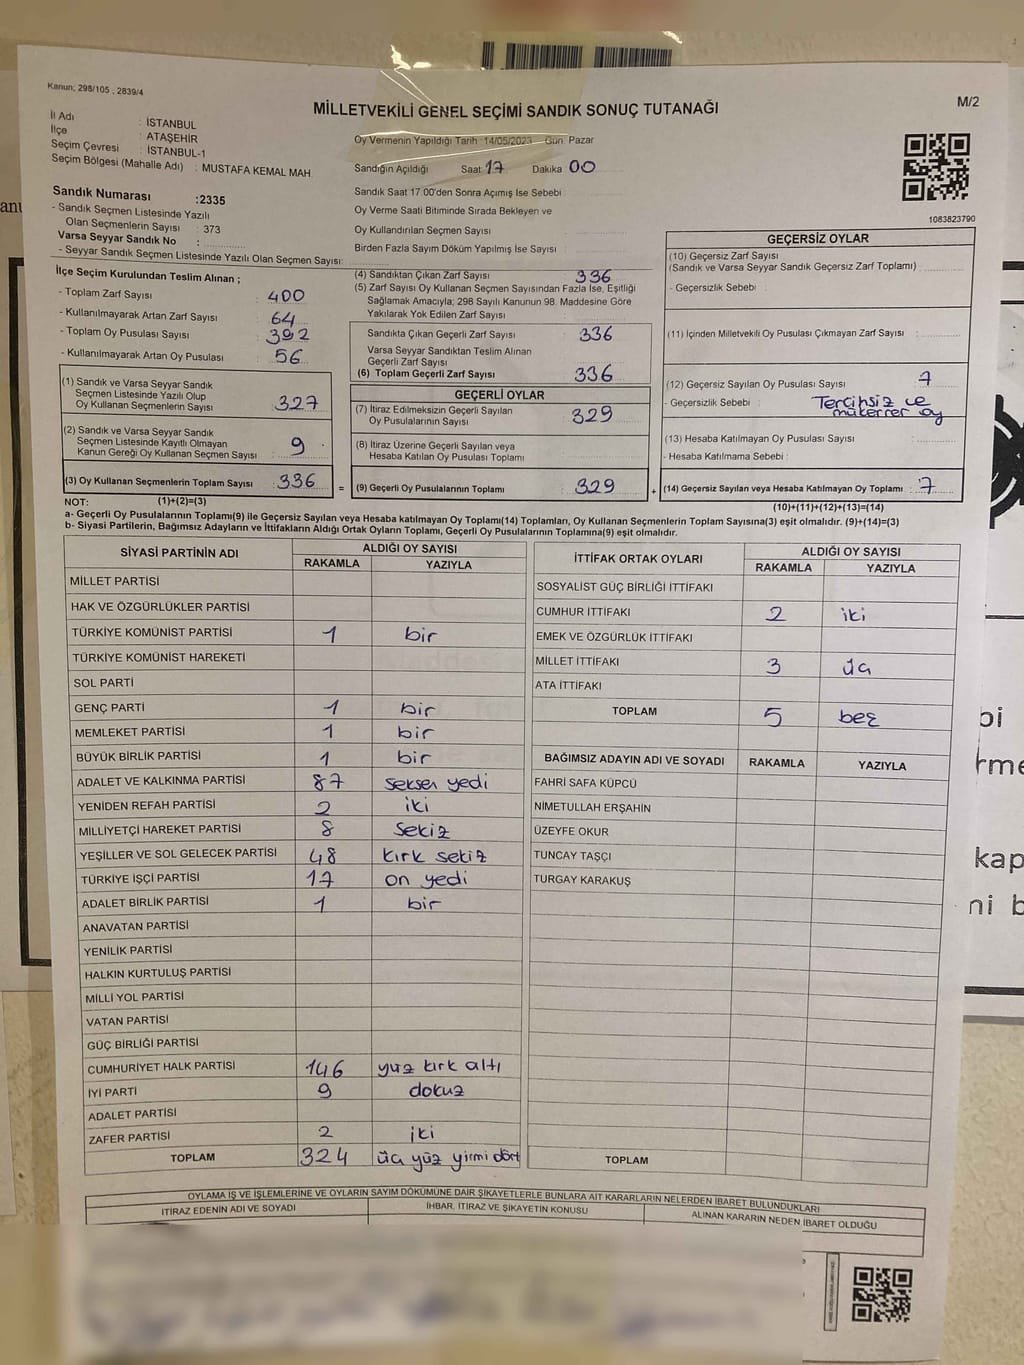 Kanun; 298/105 , 2839/4
MİLLETVEKİLİ GENEL SEÇİMİ SANDIK SONUÇ TUTANAĞI
M/2
İl Adı : İSTANBUL
İlçe : ATAŞEHİR
Seçim Çevresi : İSTANBUL-1
Seçim Bölgesi (Mahalle Adı) : MUSTAFA KEMAL MAH
Oy Vermenin Yapıldığı Tarih 14/05/2023 Gün Pazar
Sandığın Açıldığı Saat 17 Dakika 00
Sandık Saat 17.00'den Sonra Açımış İse Sebebi
Oy Verme Saati Bitiminde Sırada Bekleyen ve
Oy Kullandırılan Seçmen Sayısı
Birden Fazla Sayım Döküm Yapılmış İse Sayısı
1083823790
Sandık Numarası :2335
- Sandık Seçmen Listesinde Yazılı
Olan Seçmenlerin Sayısı : 373
Varsa Seyyar Sandık No :
- Seyyar Sandık Seçmen Listesinde Yazılı Olan Seçmen Sayısı:
İlçe Seçim Kurulundan Teslim Alınan ;
- Toplam Zarf Sayısı : 400
- Kullanılmayarak Artan Zarf Sayısı : 64
- Toplam Oy Pusulası Sayısı : 392
- Kullanılmayarak Artan Oy Pusulası : 56
(1) Sandık ve Varsa Seyyar Sandık
Seçmen Listesinde Yazılı Olup
Oy Kullanan Seçmenlerin Sayısı : 327
(2) Sandık ve Varsa Seyyar Sandık
Seçmen Listesinde Kayıtlı Olmayan
Kanun Gereği Oy Kullanan Seçmen Sayısı : 9
(3) Oy Kullanan Seçmenlerin Toplam Sayısı : 336
(4) Sandıktan Çıkan Zarf Sayısı 336
(5) Zarf Sayısı Oy Kullanan Seçmen Sayısından Fazla İse, Eşitliği
Sağlamak Amacıyla; 298 Sayılı Kanunun 98. Maddesine Göre
Yakılarak Yok Edilen Zarf Sayısı :
Sandıkta Çıkan Geçerli Zarf Sayısı : 336
Varsa Seyyar Sandıktan Teslim Alınan
Geçerli Zarf Sayısı
(6) Toplam Geçerli Zarf Sayısı : 336
GEÇERLİ OYLAR
(7) İtiraz Edilmeksizin Geçerli Sayılan
Oy Pusulalarının Sayısı : 329
(8) İtiraz Üzerine Geçerli Sayılan veya
Hesaba Katılan Oy Pusulası Toplamı :
= (9) Geçerli Oy Pusulalarının Toplamı : 329
GEÇERSİZ OYLAR
(10) Geçersiz Zarf Sayısı
(Sandık ve Varsa Seyyar Sandık Geçersiz Zarf Toplamı)
- Geçersizlik Sebebi :
(11) İçinden Milletvekili Oy Pusulası Çıkmayan Zarf Sayısı :
(12) Geçersiz Sayılan Oy Pusulası Sayısı : 7
- Geçersizlik Sebebi : Tercihsiz ve
mükerrer oy
(13) Hesaba Katılmayan Oy Pusulası Sayısı :
- Hesaba Katılmama Sebebi :
+ (14) Geçersiz Sayılan veya Hesaba Katılmayan Oy Toplamı : 7
NOT: (1)+(2)=(3)
(10)+(11)+(12)+(13)=(14)
a- Geçerli Oy Pusulalarının Toplamı(9) ile Geçersiz Sayılan veya Hesaba katılmayan Oy Toplamı(14) Toplamları, Oy Kullanan Seçmenlerin Toplam Sayısına(3) eşit olmalıdır. (9)+(14)=(3)
b- Siyasi Partilerin, Bağımsız Adayların ve İttifakların Aldığı Ortak Oyların Toplamı, Geçerli Oy Pusulalarının Toplamına(9) eşit olmalıdır.
SİYASİ PARTİNİN ADI ALDIĞI OY SAYISI
RAKAMLA YAZIYLA
MİLLET PARTİSİ
HAK VE ÖZGÜRLÜKLER PARTİSİ
TÜRKİYE KOMÜNİST PARTİSİ 1 bir
TÜRKİYE KOMÜNİST HAREKETİ
SOL PARTİ
GENÇ PARTİ 1 bir
MEMLEKET PARTİSİ 1 bir
BÜYÜK BİRLİK PARTİSİ 1 bir
ADALET VE KALKINMA PARTİSİ 87 seksen yedi
YENİDEN REFAH PARTİSİ 2 iki
MİLLİYETÇİ HAREKET PARTİSİ 8 sekiz
YEŞİLLER VE SOL GELECEK PARTİSİ 48 kırk sekiz
TÜRKİYE İŞÇİ PARTİSİ 17 on yedi
ADALET BİRLİK PARTİSİ 1 bir
ANAVATAN PARTİSİ
YENİLİK PARTİSİ
HALKIN KURTULUŞ PARTİSİ
MİLLİ YOL PARTİSİ
VATAN PARTİSİ
GÜÇ BİRLİĞİ PARTİSİ
CUMHURİYET HALK PARTİSİ 146 yüz kırk altı
İYİ PARTİ 9 dokuz
ADALET PARTİSİ
ZAFER PARTİSİ 2 iki
TOPLAM 324 üç yüz yirmi dört
İTTİFAK ORTAK OYLARI ALDIĞI OY SAYISI
RAKAMLA YAZIYLA
SOSYALİST GÜÇ BİRLİĞİ İTTİFAKI
CUMHUR İTTİFAKI 2 iki
EMEK VE ÖZGÜRLÜK İTTİFAKI
MİLLET İTTİFAKI 3 üç
ATA İTTİFAKI
TOPLAM 5 beş
BAĞIMSIZ ADAYIN ADI VE SOYADI RAKAMLA YAZIYLA
FAHRİ SAFA KÜPCÜ
NİMETULLAH ERŞAHİN
ÜZEYFE OKUR
TUNCAY TAŞÇI
TURGAY KARAKUŞ
TOPLAM
OYLAMA İŞ VE İŞLEMLERİNE VE OYLARIN SAYIM DÖKÜMÜNE DAİR ŞİKAYETLERLE BUNLARA AİT KARARLARIN NELERDEN İBARET BULUNDUKLARI
İTİRAZ EDENİN ADI VE SOYADI İHBAR, İTİRAZ VE ŞİKAYETİN KONUSU ALINAN KARARIN NEDEN İBARET OLDUĞU
bi
rme
kap
ni b